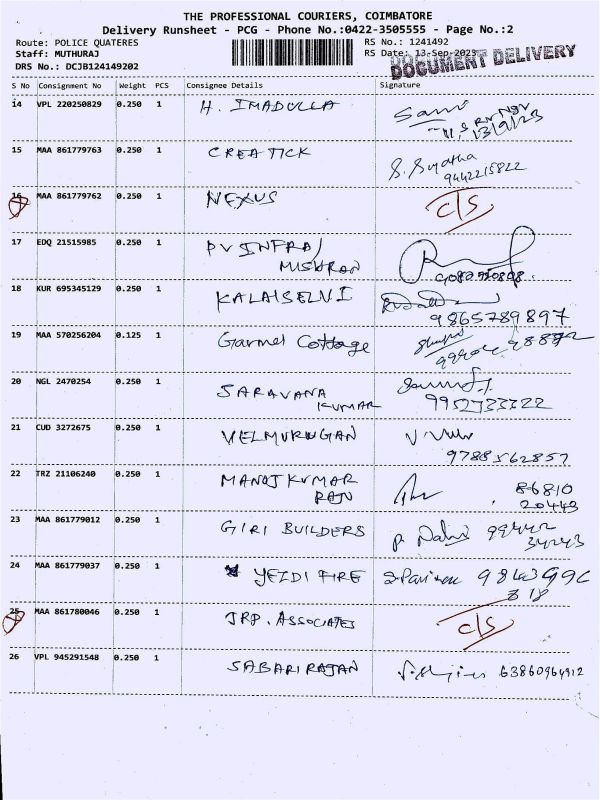 THE PROFESSIONAL COURIERS, COIMBATORE
Delivery Runsheet - PCG - Phone No.:0422-3505555 - Page No.:2
Route: POLICE QUATERES RS No.: 1241492
Staff: MUTHURAJ RS Date: 13-Sep-2023
DRS No.: DCJB124149202 DOCUMENT DELIVERY
S No Consignment No Weight PCS Consignee Details Signature
14 VPL 220250829 0.250 1 H. IMADULLA
13/9/23
15 MAA 861779763 0.250 1 CREATICK S. Sujatha
9442215822
16 MAA 861779762 0.250 1 NEXUS C/S
17 EDQ 21515985 0.250 1 PV INFRA/
MUSKRAN
18 KUR 695345129 0.250 1 KALAISELVI
9865789897
19 MAA 570256204 0.125 1 Garmel Cottage
20 NGL 2470254 0.250 1 SARAVANA
KUMAR 9952733322
21 CUD 3272675 0.250 1 VELMURUGAN
9788562857
22 TRZ 21106240 0.250 1 MANOJ KUMAR 86810
RAN 20443
23 MAA 861779012 0.250 1 GIRI BUILDERS 99442
34243
24 MAA 861779037 0.250 1 YEZDI FIRE
818
25 MAA 861780046 0.250 1 JRP. ASSOCIATES C/S
26 VPL 945291548 0.250 1 SABARI RAJAN 63860964912